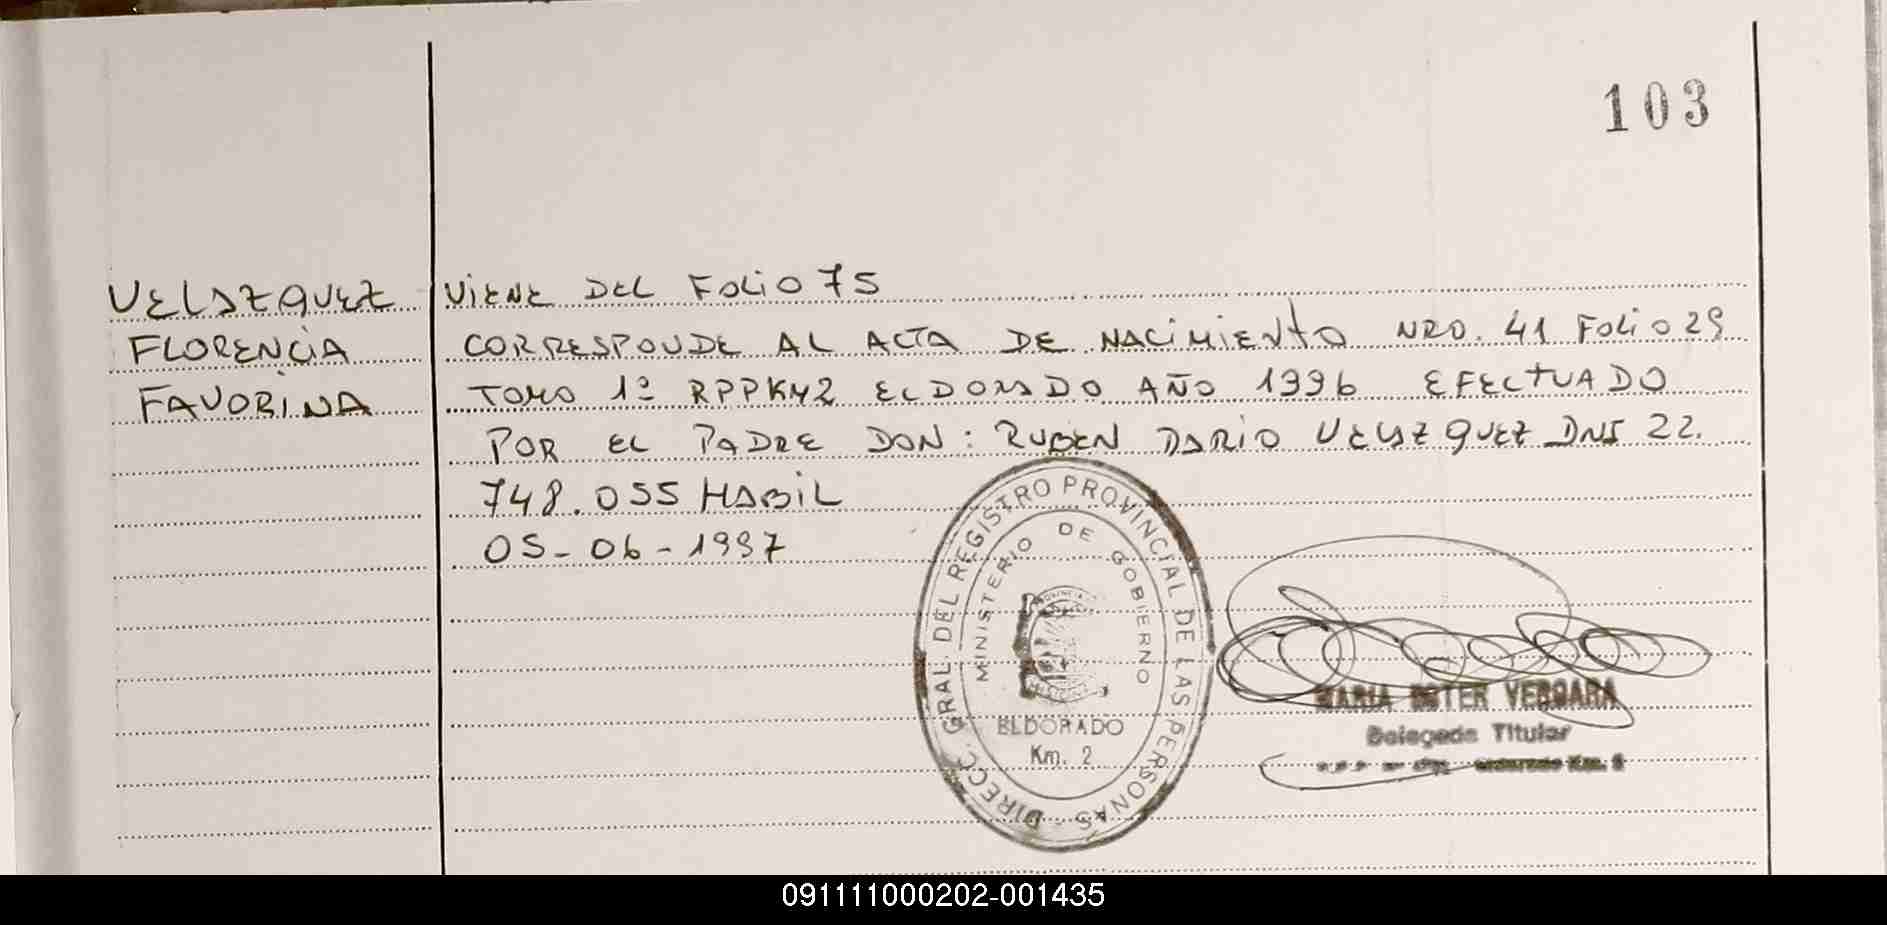 103
VELAZQUEZ
FLORENCIA
FAVORINA
VIENE DEL FOLIO 75
CORRESPONDE AL ACTA DE NACIMIENTO NRO. 41 FOLIO 29
TOMO 1º RPPKM2 ELDORADO AÑO 1996 EFECTUADO
POR EL PADRE DON: RUBEN DARIO VELAZQUEZ DNI 22.
748.055 HABIL
05-06-1997
DIRECC. GRAL. DEL REGISTRO PROVINCIAL DE LAS PERSONAS
MINISTERIO DE GOBIERNO
ELDORADO
Km. 2
MARIA ESTER VERGARA
Delegada Titular
Eldorado Km. 2
091111000202-001435